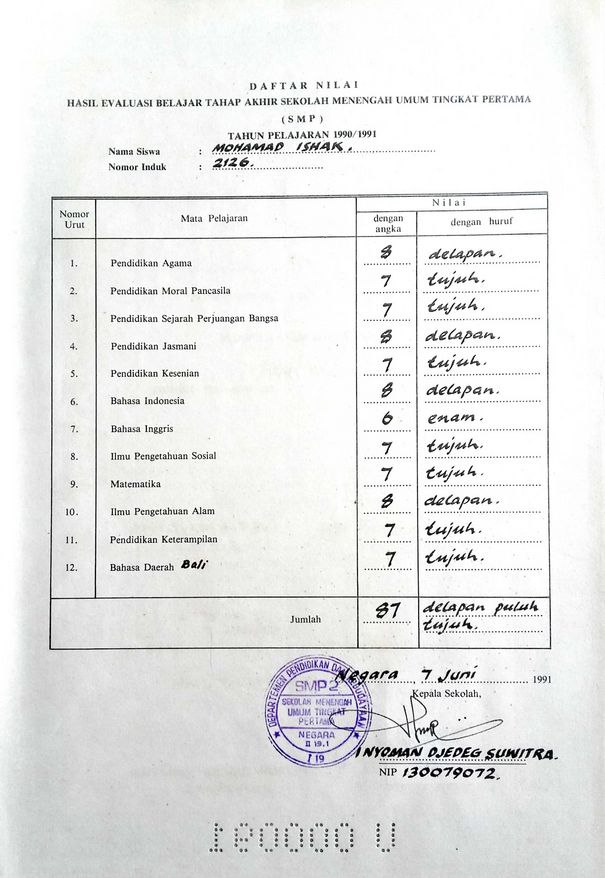 DAFTAR NILAI
HASIL EVALUASI BELAJAR TAHAP AKHIR SEKOLAH MENENGAH UMUM TINGKAT PERTAMA
(SMP)
TAHUN PELAJARAN 1990/1991
Nama Siswa : MOHAMAD ISHAK.
Nomor Induk : 2126.
Nomor Urut Mata Pelajaran Nilai
dengan angka dengan huruf
1. Pendidikan Agama 8 delapan.
2. Pendidikan Moral Pancasila 7 tujuh.
3. Pendidikan Sejarah Perjuangan Bangsa 7 tujuh.
4. Pendidikan Jasmani 8 delapan.
5. Pendidikan Kesenian 7 tujuh.
6. Bahasa Indonesia 8 delapan.
7. Bahasa Inggris 6 enam.
8. Ilmu Pengetahuan Sosial 7 tujuh.
9. Matematika 7 tujuh.
10. Ilmu Pengetahuan Alam 8 delapan.
11. Pendidikan Keterampilan 7 tujuh.
12. Bahasa Daerah Bali 7 tujuh.
Jumlah 87 delapan puluh
tujuh.
Negara 7 Juni 1991
Kepala Sekolah,
DEPARTEMEN PENDIDIKAN DAN KEBUDAYAAN
SMP 2
SEKOLAH MENENGAH
UMUM TINGKAT
PERTAMA
NEGARA
II 19.1
I 19
I NYOMAN DJEDEG SUWITRA.
NIP 130079072.